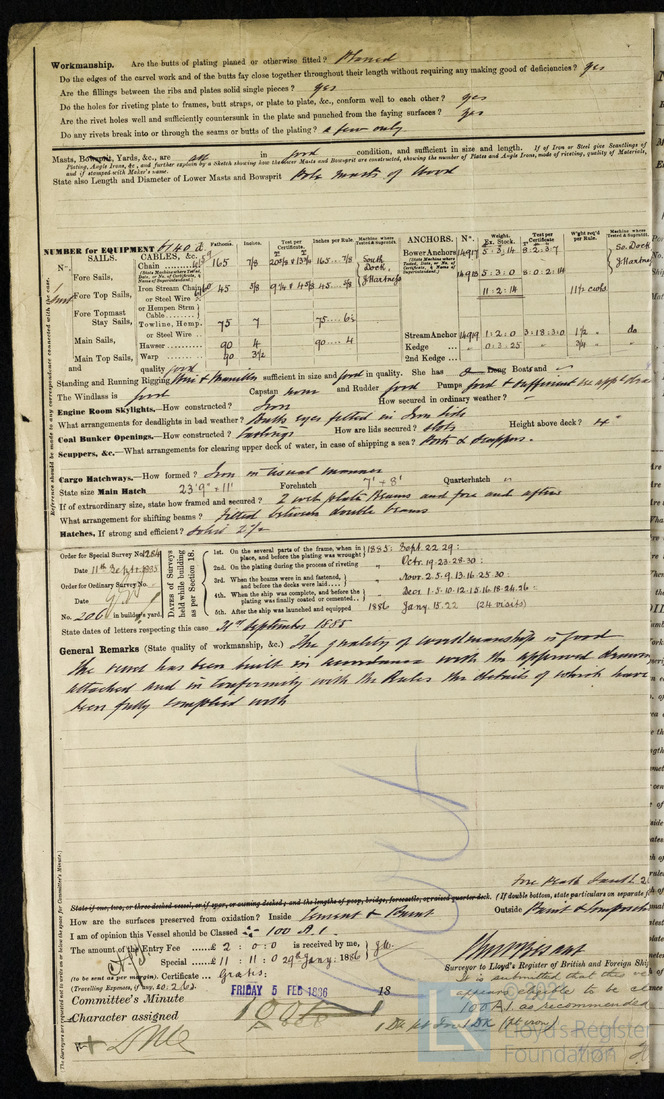 Workmanship. Are the butts of plating planed or otherwise fitted? Planed
Do the edges of the carvel work and of the butts fay close together throughout their length without requiring any making good of deficiencies? yes
Are the fillings between the ribs and plates solid single pieces? yes
Do the holes for riveting plate to frames, butt straps, or plate to plate, &c., conform well to each other? yes
Are the rivet holes well and sufficiently countersunk in the plate and punched from the faying surfaces? yes
Do any rivets break into or through the seams or butts of the plating? a few only
Masts, Bowsprit, Yards, &c., are all in good condition, and sufficient in size and length. If of Iron or Steel give Scantlings of
Plating, Angle Irons, &c., and further explain by a Sketch showing how the lower Masts and Bowsprit are constructed, showing the number of Plates and Angle Irons, mode of riveting, quality of Materials,
and if stamped with Maker's name.
State also Length and Diameter of Lower Masts and Bowsprit Pole masts of Wood
NUMBER for EQUIPMENT 6140
SAILS. CABLES, &c. Fathoms. Inches. Test per Certificate. Inches per Rule. Machine where Tested & Suprntdt. ANCHORS. No. Weight. Ex. Stock. Test per Certificate Wght req'd per Rule. Machine where Tested & Suprntdt.
Fore Sails, Chain 165 7/8 165 7/8 South Dock, J Hartness Bower Anchors 14917 5:3:14 8:2:3:7 So. Dock J Hartness
Fore Top Sails, Iron Stream Chain or Steel Wire 45 5/8 45 5/8 5:3:0 8:0:2:14
or Hempen Strm Cable 11:2:14 11½ cwts
Fore Topmast Stay Sails, Towline, Hemp 75 7 75
or Steel Wire Stream Anchor 14919 1:2:0 3:18:3:0 1½ do
Main Sails, Hawser 90 4 90 4 Kedge 0:3:25 ¾
Main Top Sails, Warp 90 3½ 2nd Kedge
and quality good
Standing and Running Rigging Wire & Manilla sufficient in size and good in quality. She has Long Boats and
The Windlass is good Capstan none and Rudder good Pumps good & sufficient
Engine Room Skylights.—How constructed? Iron How secured in ordinary weather?
What arrangements for deadlights in bad weather? Bulls eyes fitted in Iron lids
Coal Bunker Openings.—How constructed? Castings How are lids secured? Slots Height above deck? 4"
Scuppers, &c.—What arrangements for clearing upper deck of water, in case of shipping a sea? Ports & Scuppers.
Cargo Hatchways.—How formed? Iron in usual manner
State size Main Hatch 23'9" × 11' Forehatch 7' × 8' Quarterhatch
If of extraordinary size, state how framed and secured? 2 web plate Beams and fore and afters
What arrangement for shifting beams? fitted between double beams
Hatches, If strong and efficient? Solid 2½"
Order for Special Survey No. 284
Date 11th Septr 1885
Order for Ordinary Survey No.
Date
No. 206 in builder's yard.
DATES of Surveys held while building as per Section 18.
1st. On the several parts of the frame, when in place, and before the plating was wrought 1885: Sept. 22. 29:
2nd. On the plating during the process of riveting Octr. 19. 23. 28. 30:
3rd. When the beams were in and fastened, and before the decks were laid Novr. 2. 5. 9. 13. 16. 25. 30:
4th. When the ship was complete, and before the plating was finally coated or cemented Decr 1. 5. 10. 12. 15. 16. 18. 24. 26:
5th. After the ship was launched and equipped 1886 Jany. 15. 22 (24 visits)
State dates of letters respecting this case September 1885
General Remarks (State quality of workmanship, &c.) The quality of workmanship is good
The vessel has been built in accordance with the approved drawn
attached and in conformity with the Rules the details of which have
been fully complied with
State if one, two, or three decked vessel, or if spar, or awning decked; and the lengths of poop, bridge, forecastle, or raised quarter deck. (If double bottom, state particulars on separate
How are the surfaces preserved from oxidation? Inside Cement & Paint Outside Paint & Composit
I am of opinion this Vessel should be Classed 100 A.1.
The amount of the Entry Fee £ 2 : 0 : 0 is received by me,
Special £ 11 : 11 : 0 29th Jany: 1886
(to be sent as per margin). Certificate Gratis:
(Travelling Expenses, if any, £0:2:6).
Surveyor to Lloyd's Register of British and Foreign Ship
Committee's Minute FRIDAY 5 FEB 1886 18
Character assigned 100A1
It is submitted that this ve
appears eligible to be cl
100A1 as recommended
1 Dk
© 202
Lloyd's Register
Foundation